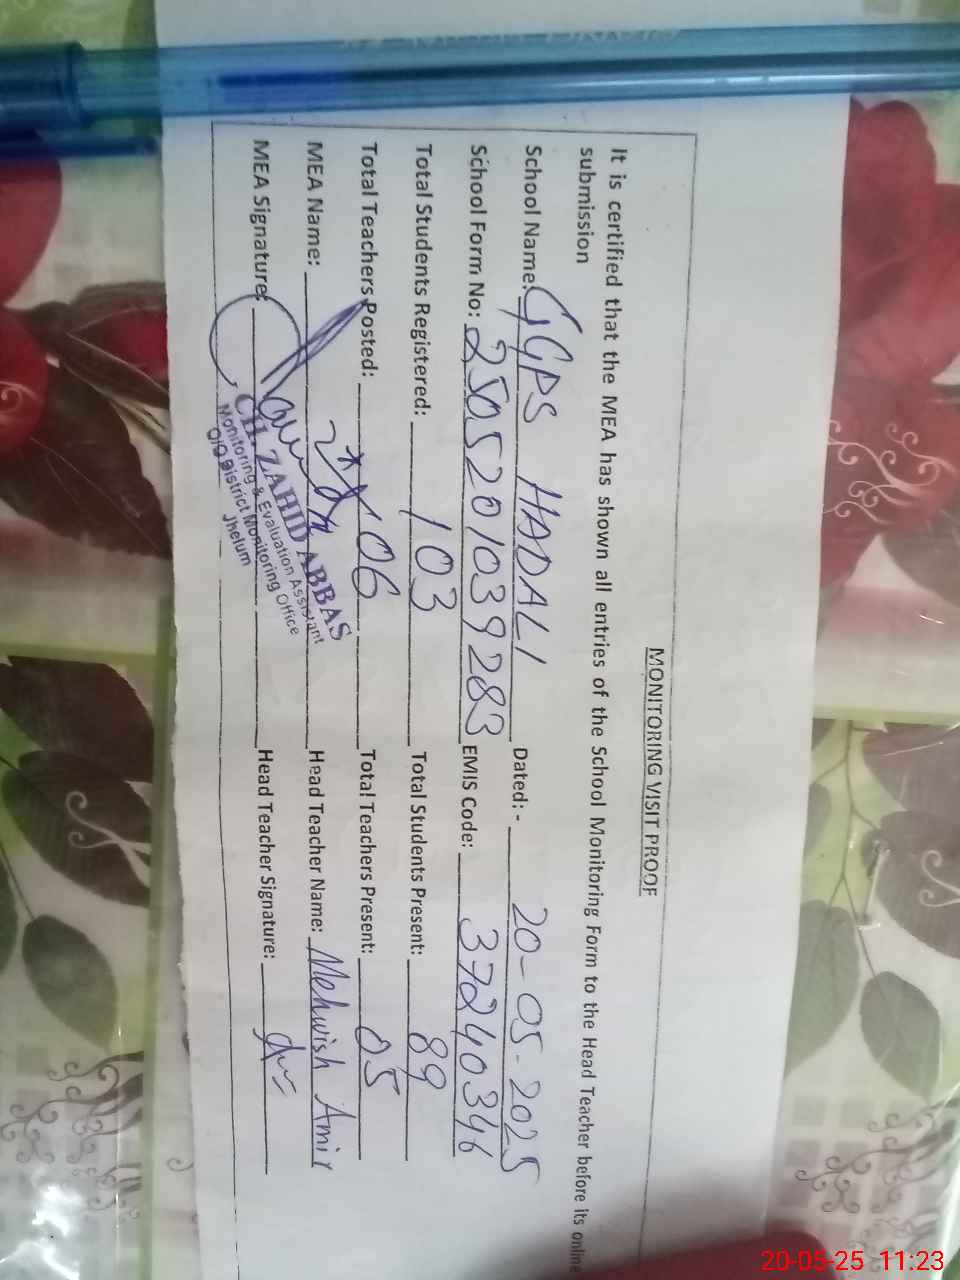 MONITORING VISIT PROOF
It is certified that the MEA has shown all entries of the School Monitoring Form to the Head Teacher before its online
submission
School Name: GGPS HADALI Dated: - 20-05-2025
School Form No: 2505201039283 EMIS Code: 37240346
Total Students Registered: 103 Total Students Present: 89
Total Teachers Posted: 06 Total Teachers Present: 05
MEA Name: Head Teacher Name: Mehwish Amir
MEA Signature: Head Teacher Signature:
CH. ZAHID ABBAS
Monitoring & Evaluation Assistant
O/O District Monitoring Office
Jhelum
20-05-25 11:23